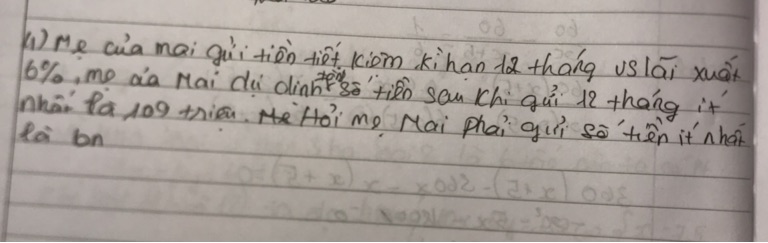 4) Mẹ của mai gửi tiền tiết kiệm kì hạn 12 tháng vs lãi xuất
6%, mẹ của Mai dự định tổng số tiền sau khi gửi 12 tháng ít
nhất là 109 triệu. Hỏi mẹ Mai phải gửi số tiền ít nhất
là bn